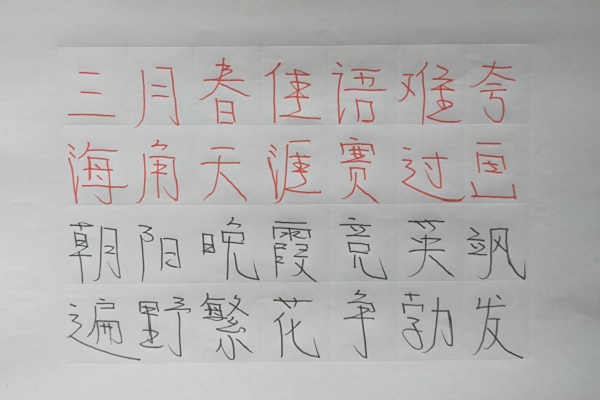 三月春佳语难夸
海角天涯赛过画
朝阳晚霞竞英飒
遍野繁花争勃发